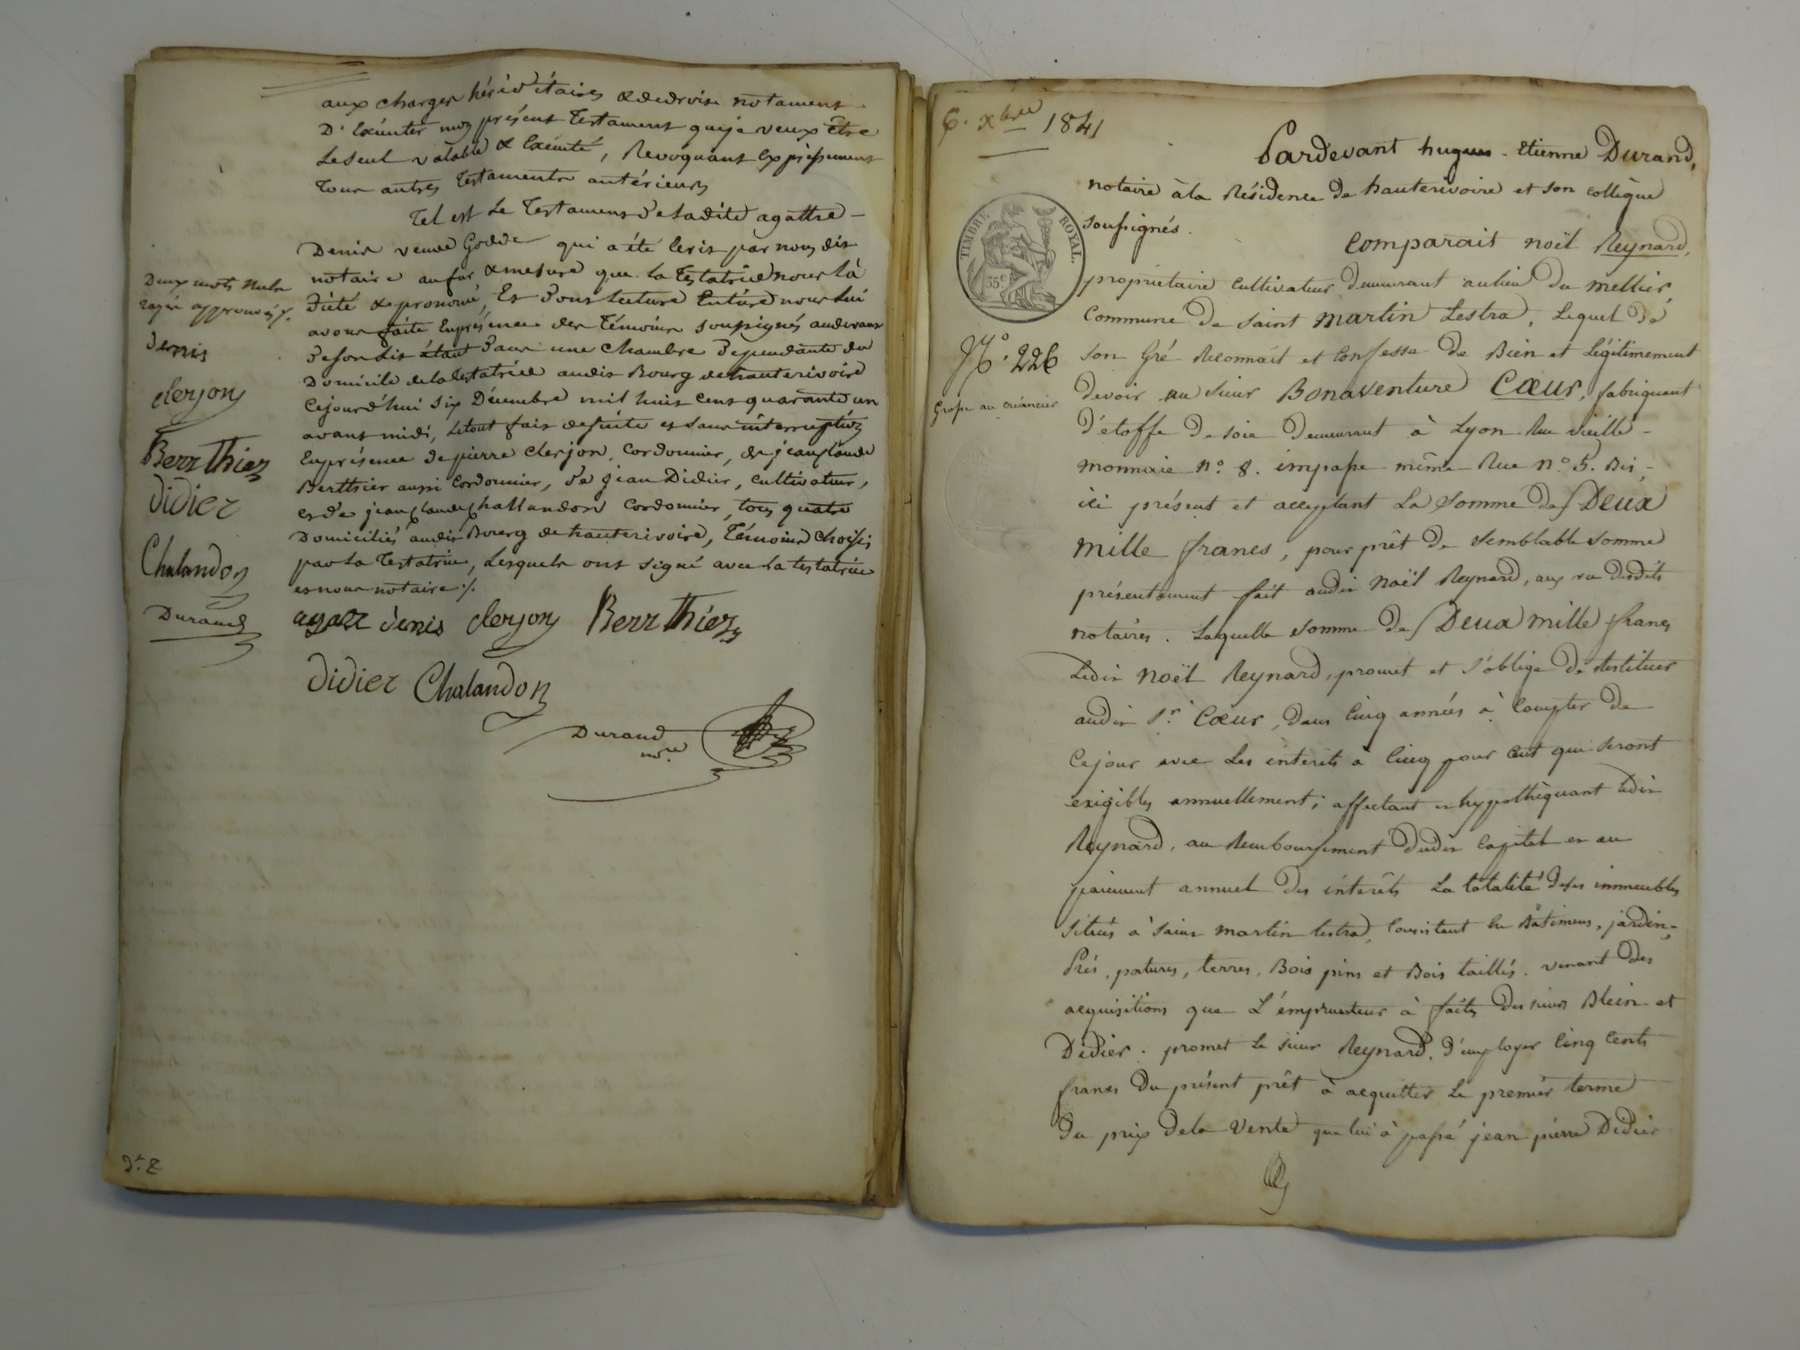 aux charges héréditaires & de droit notament
D'Exécuter mon présent Testament que je veux être
le seul valable & Exécuté, Revoquant Expressement
Tous autres Testaments antérieurs
Tel est Le Testament de ladite agathe
Denis veuve Godde qui a été Ecrit par nous dit
notaire au fur & mesure que la Testatrice nous l'à
dicté & prononcé, Et dont lecture Entière nous lui
avons faite Enprésence des Témoins soussignés audevant
de son lit étant dans une chambre dépendante du
Domicile de la testatrice audit Bourg de hauterivoire
Cejourd'hui six Décembre mil huit cent quarante un
avant midi, le tout fait de suite et sans interruption
Enprésence de pierre Clerjon, Cordonnier, de jean Claude
Berthier aussi Cordonnier, de jean Didier, cultivateur,
et de jean Claude Challandon Cordonnier, tous quatre
Domiciliés audit Bourg de hauterivoire, Témoins Choisis
par La Testatrice, Lesquels ont signé avec la testatrice
et nous notaire ./.
Deux mots nuls
rayés approuvés ./.
denis
clerjon
Berrthier
didier
Chalandon
Durand
agatt denis clerjon Berrthier
didier Chalandon
Durand
nre
6. Xbre 1841
TIMBRE ROYAL
35c
No. 226
Grosse au créancier
Pardevant hugues-Etienne Durand,
notaire à la Résidence de hauterivoire et son collègue
soussignés.
Comparait noël Reynard,
propriétaire cultivateur demeurant au lieu du mellier
Commune de saint martin Lestra, Lequel de
son Gré Reconnait et Confesse de Bien et Légitimement
devoir au sieur Bonaventure Cœur, fabriquant
d'étoffe de soie demeurant à Lyon Rue vieille-
monnaie no. 8. impasse même Rue no. 5. Bis,
ici présent et acceptant La somme de Deux
mille francs, pour prêt de semblable somme
présentement fait audit noël Reynard, aux vu desdits
notaires. Laquelle somme de Deux mille francs
Ledit noël Reynard, promet et s'oblige de restituer
audit Sr. Cœur, dans Cinq années à Compter de
Cejour avec Les intérêts à Cinq pour cent qui seront
exigibles annuellement; affectant et hypothèquant ledit
Reynard, au Remboursement dudit Capital et au
paiement annuel des intérêts La totalité de ses immeubles
situés à saint martin lestra, Consistant En Bâtimens, jardin,
Prés, patures, terres, Bois pins et Bois taillis. venant des
acquisitions que L'emprunteur à faites des sieurs Blein et
Didier. promet Le sieur Reynard, d'employer Cinq Cents
francs du présent prêt à acquitter Le premier terme
du prix de la vente que lui à passé jean pierre Didier